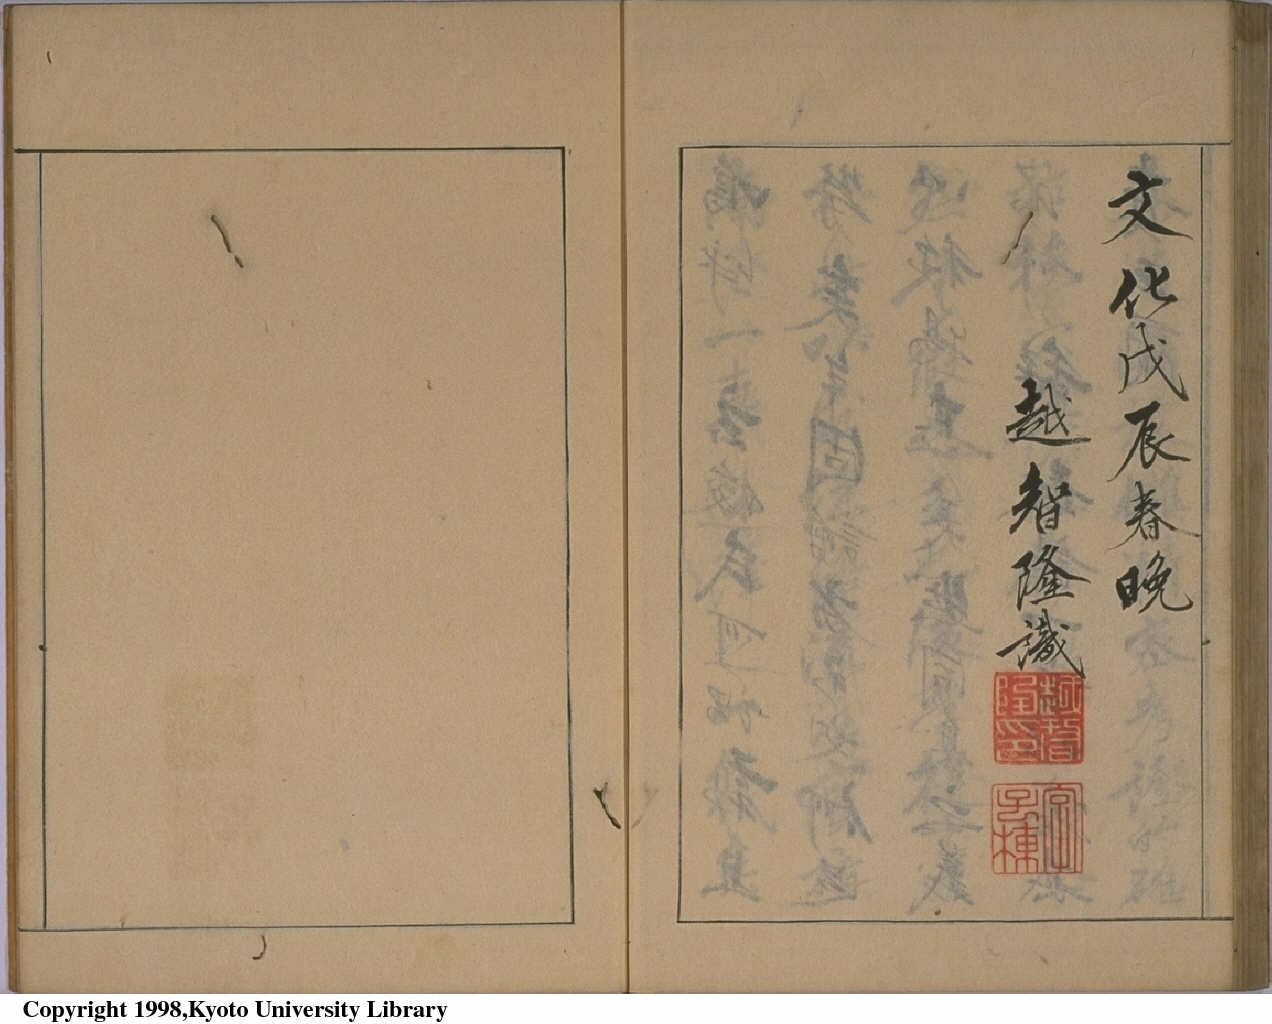 文化戊辰春晩
越智隆識
越智
隆印
字曰
子棟
Copyright 1998,Kyoto University Library